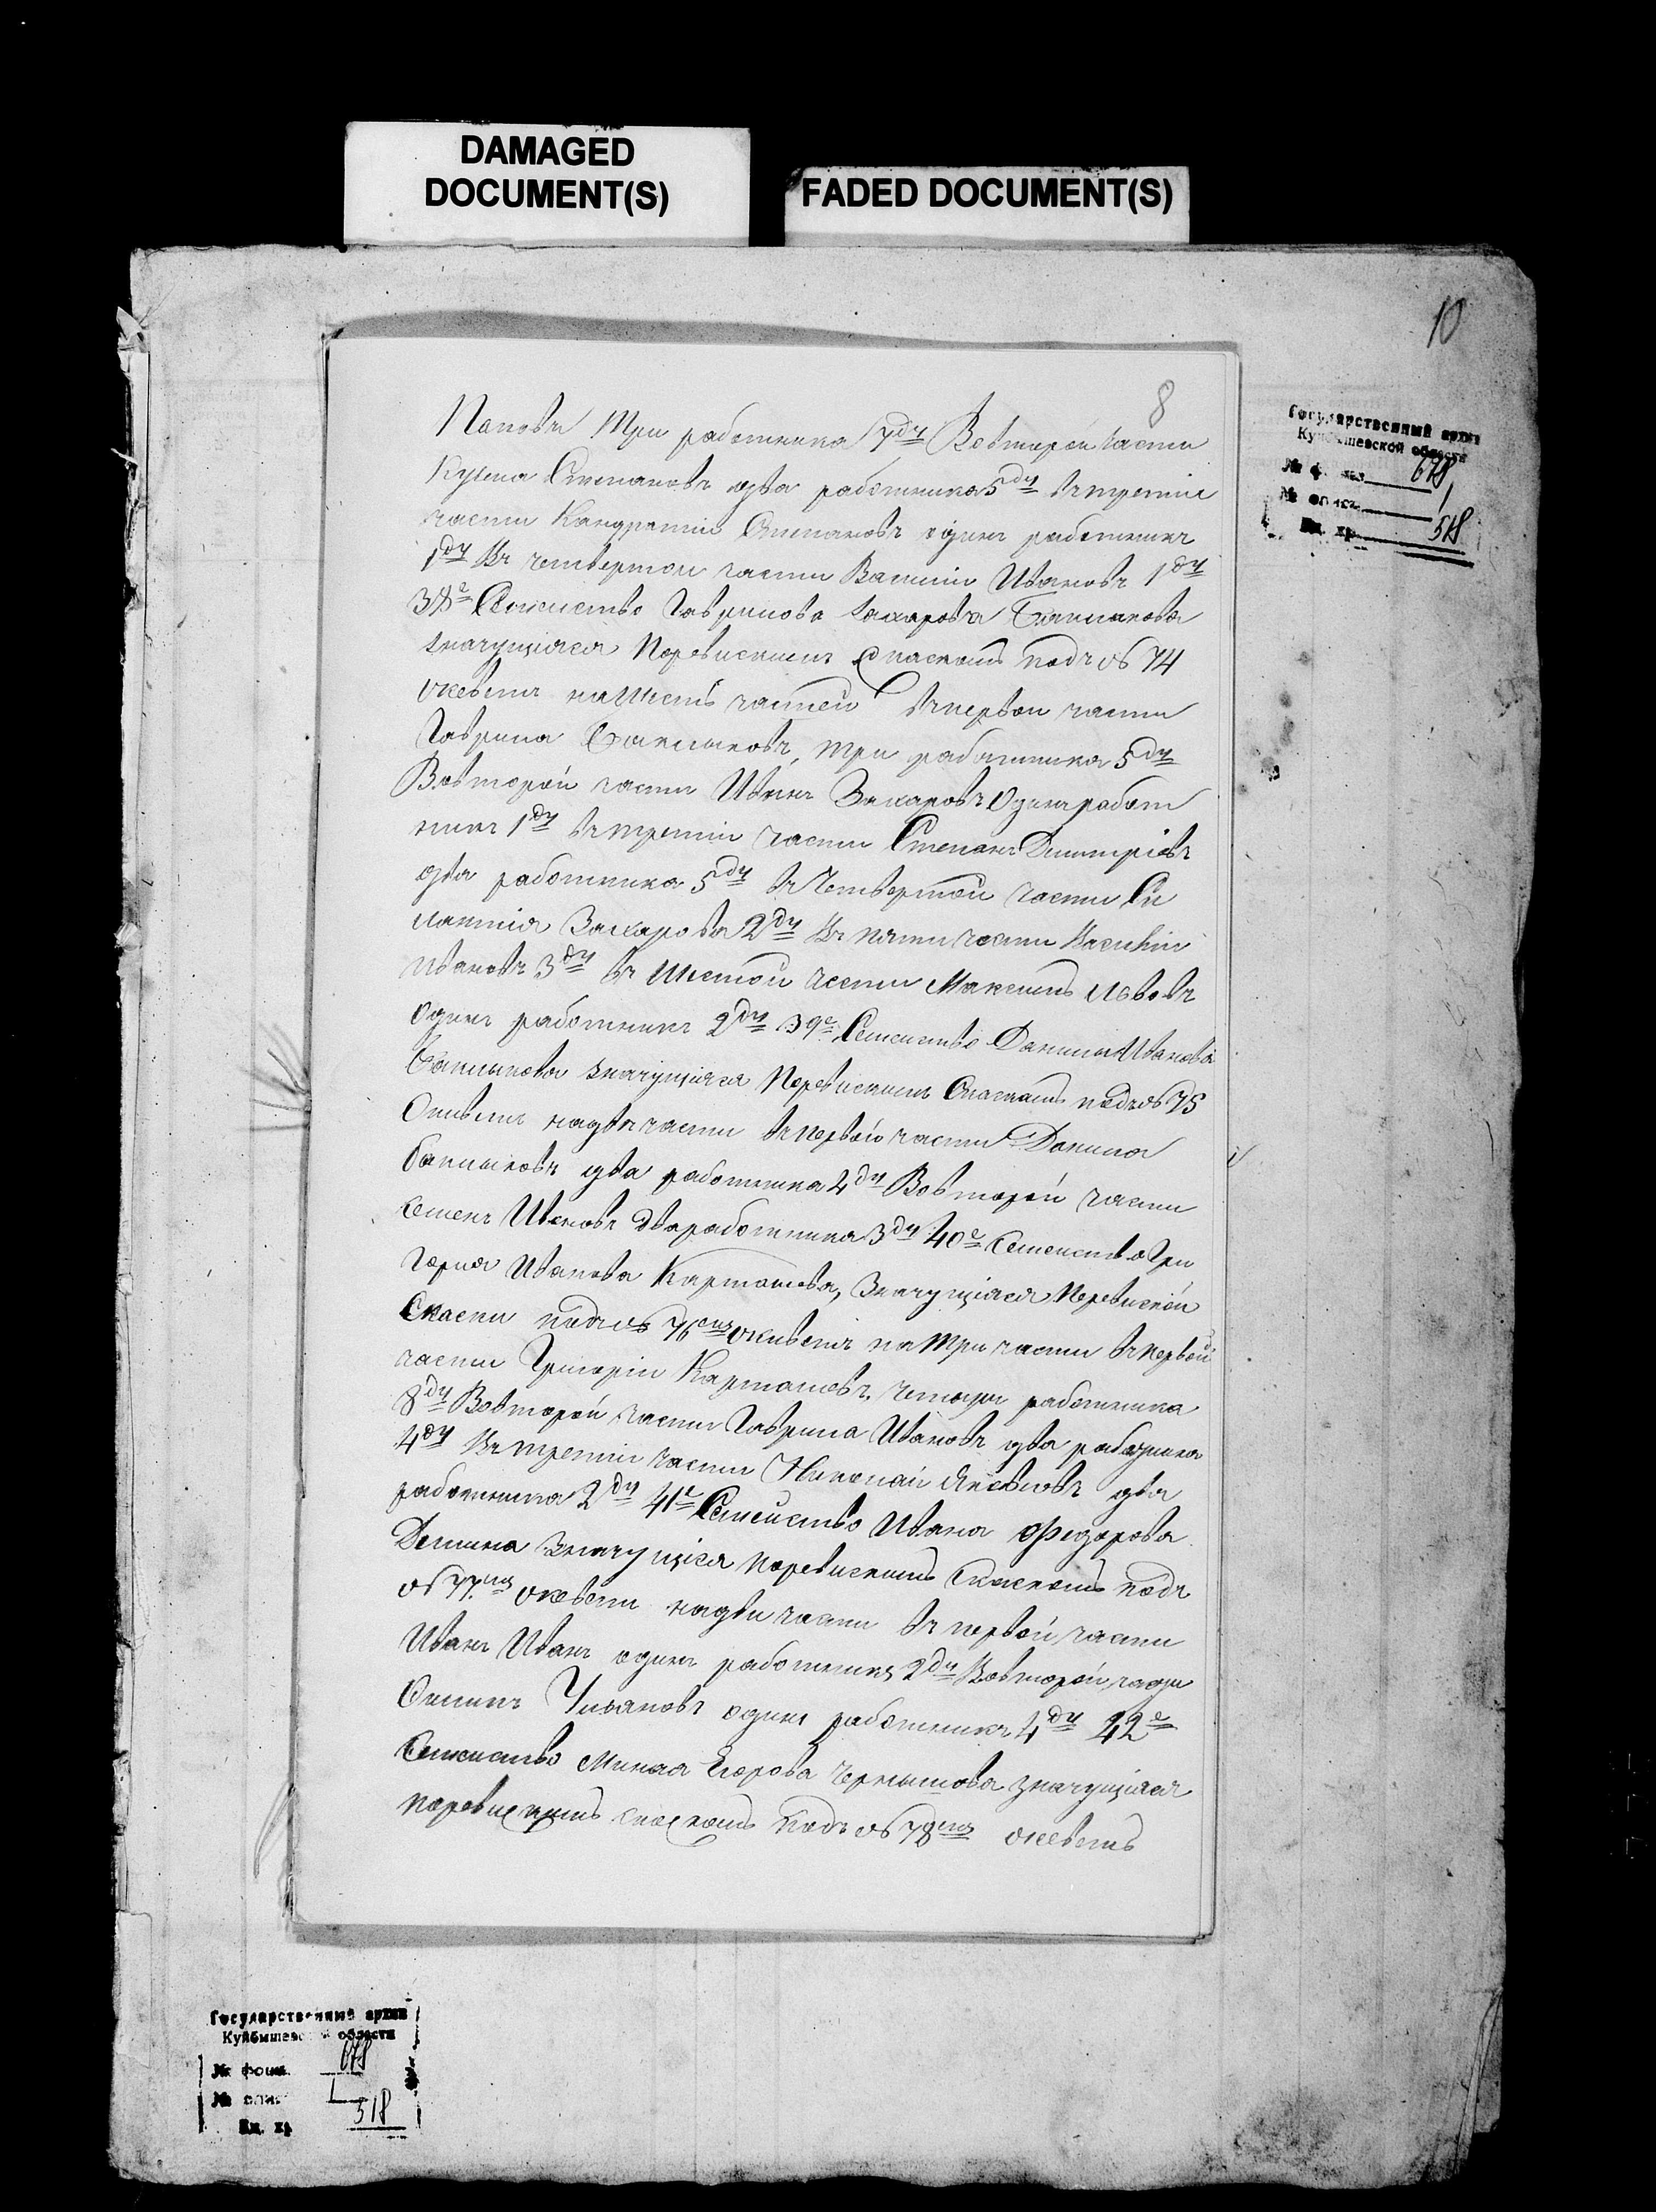 DAMAGED
DOCUMENT(S)
FADED DOCUMENT(S)
10
8
Государственный архив
Куйбышевской области
678
1
518
Поповъ Три работника 7ду Вовторой части
Кузма Степановъ два работника 5ду Втретие
части Кандратий Степановъ один работникъ
1ду Въ четвертои части Василии Ивановъ 1ду
38е Семеиство Гаврилова Захарова Баклыкова
значущияся Поревискимъ Скаскомъ подъ № 74
на Шесть частей Впервои части
Гаврила Баклыковъ, три работника 5ду
Вовторой части Иванъ Захаровъ Одинъ работ
никъ 1ду Втретии части Степанъ Дмитриевъ
два работника 5ду вЧетвертой части Си
Захарова 2ду Въ пяти части Василии
Ивановъ 3ду въ Шестои части Максимъ Львовъ
Одинъ работникъ 2ду 39е Семеиство Данилы Иванова
Баклыкова значущияся Поревискимъ Скаскамъ подъ № 75
надве части Впервои части Данила
Баклыковъ два работника 4ду Вовторой части
Семенъ Ивановъ два работника 3ду 40е Семеиство Гри
горья Иванова Карташева, Значущияся Поревиской
Скаски подъ № 76емъ на три части Впервой
части Григории Карташевъ, четыри работника
8ду Вовторой части Гаврила Ивановъ два работника
4ду Въ третии части Николаи Яковлевъ два
работника 2ду 41е Семеиство Ивана Федорова
Демина Значущіяся поревискимъ Скаскомъ подъ
№ 77.мъ надве части Въ первой части
Иванъ Иванъ одинъ работникъ 2ду Вовторой части
Осипъ одинъ работникъ 4ду 42е
Семеиство Миная Егорова Чернышова значущіяся
поревискимъ скаскомъ подъ № 78мъ
Государственный архив
Куйбышевской области
№ фонд. 678
№ опис. 1
Ед. хр. 518